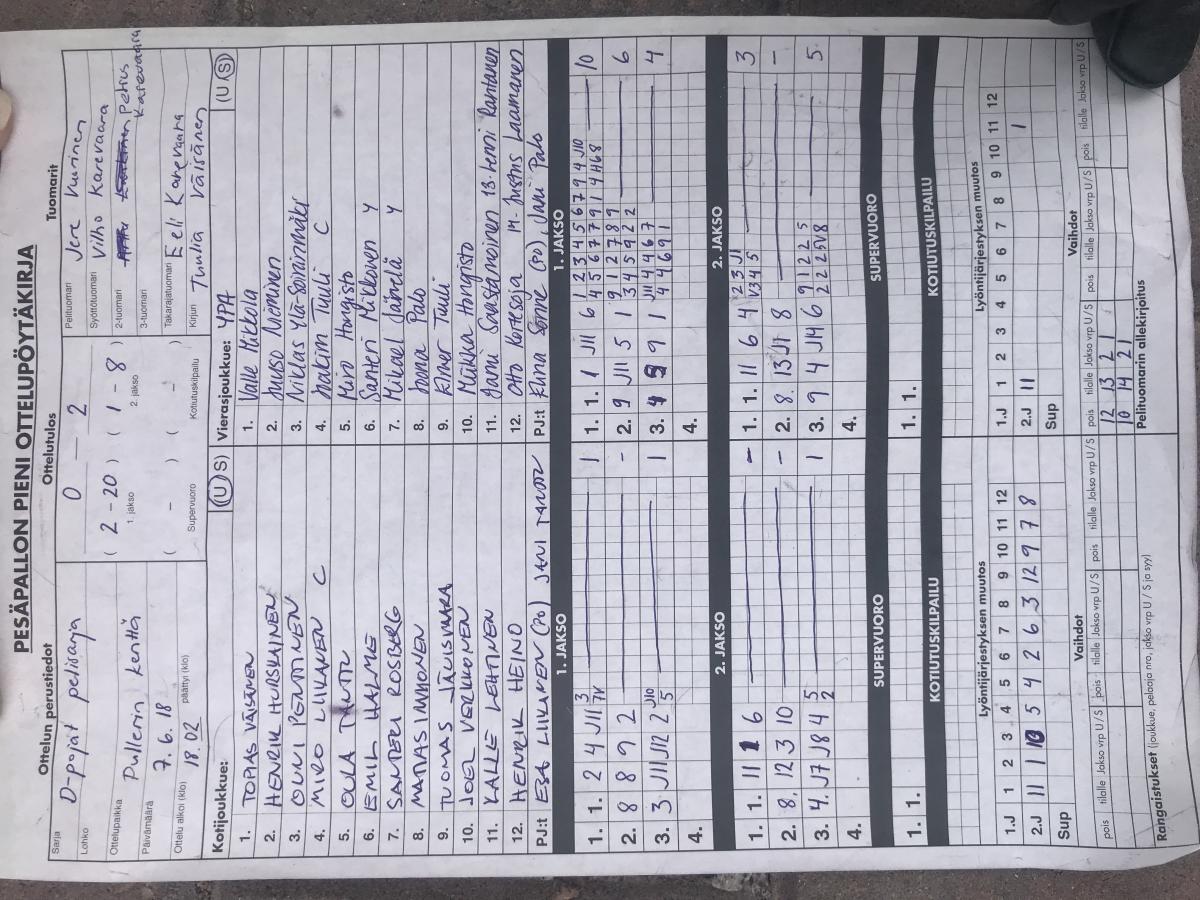 PESÄPALLON PIENI OTTELUPÖYTÄKIRJA
Ottelun perustiedot
Sarja D-pojat pelisarja
Lohko
Ottelupaikka Pullerin kenttä
Päivämäärä 7.6.18
Ottelu alkoi (klo) 18.02 päättyi (klo)
Ottelutulos
0 — 2
( 2 - 20 ) ( 1 - 8 )
1. jakso 2. jakso
( - ) ( - )
Supervuoro Kotiutuskilpailu
Tuomarit
Pelituomari Jere Vuorinen
Syöttötuomari Vilho Karevaara
2-tuomari Petrus Karevaara
3-tuomari
Takarajatuomari Eeli Karevaara
Kirjuri Tuulia Väisänen
Kotijoukkue: (U S)
1. TOPIAS VÄISÄNEN
2. HENRIK HURSKAINEN
3. OLIVI PENTTINEN
4. MIRO LIIKANEN C
5. OULA TANTTU
6. EMIL HALME
7. SANTERI ROSBERG
8. MATIAS IMMONEN
9. TUOMAS JÄLKISVAARA
10. JOEL VERKKONEN
11. KALLE LEHTINEN
12. HENRIK HEINO
PJ:t ESA LIIKANEN (PO) JANI TANTTU
Vierasjoukkue: YPA (U S)
1. Valle Mikkola
2. Juuso Nieminen
3. Niklas Ylä-Soininmäki
4. Joakim Tuuli C
5. Miro Hongisto
6. Santeri Mikkonen Y
7. Mikael Jämelä Y
8. Joona Palo
9. Krister Tuuli
10. Miikka Hongisto
11. Jami Sauasamoinen 13. Henri Rantanen
12. Otto Kortesoja 14. Justus Laamanen
PJ:t (PO), Jani Palo
1. JAKSO
1. 1. 2 4 J11 3 7V 1
2. 8 8 9 2 -
3. 3 J11 J12 2 J10 5 1
4.
1. JAKSO
1. 1. 1 J11 6 1 2 3 4 5 6 7 9 4 J10 10
4 5 6 7 7 9 1 4 H 6 8
2. 9 J11 5 1 9 1 2 7 8 9 6
3 4 5 9 2 2
3. 9 9 1 J11 4 4 6 7 4
4 4 6 9 1
4.
2. JAKSO
1. 1. 11 1 6 -
2. 8. 12 3 10 -
3. 4. J7 J8 4 5 2 1
4.
2. JAKSO
1. 1. 11 6 4 2 3 J1 3
V3 4 5
2. 8. 13 J1 8 -
3. 9 4 J14 6 9 1 2 2 5 5
2 2 2 5V8
4.
SUPERVUORO
1. 1.
SUPERVUORO
1. 1.
KOTIUTUSKILPAILU
KOTIUTUSKILPAILU
Lyöntijärjestyksen muutos
1 2 3 4 5 6 7 8 9 10 11 12
1.J
2.J 11 1 10 5 4 2 6 3 12 9 7 8
Sup
Lyöntijärjestyksen muutos
1 2 3 4 5 6 7 8 9 10 11 12
1.J
2.J 11 1
Sup
Vaihdot
pois tilalle Jakso vrp U / S pois tilalle Jakso vrp U / S pois tilalle Jakso vrp U / S
Vaihdot
pois tilalle Jakso vrp U / S pois tilalle Jakso vrp U / S pois tilalle Jakso vrp U / S
12 13 2 1
10 14 2 1
Rangaistukset (joukkue, pelaaja nro, jakso vrp U / S ja syy)
Pelituomarin allekirjoitus